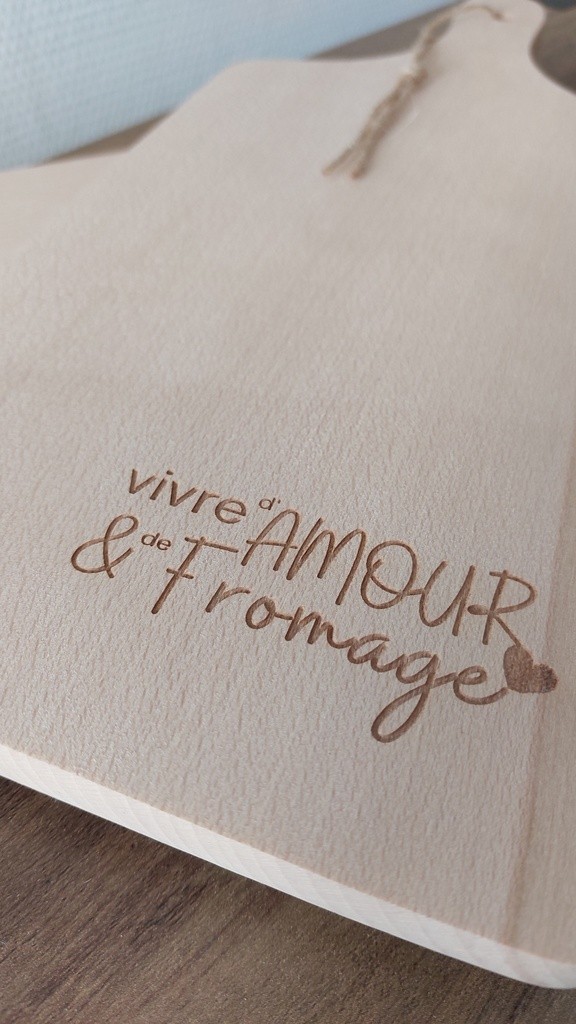 vivre d'AMOUR
& de Fromage